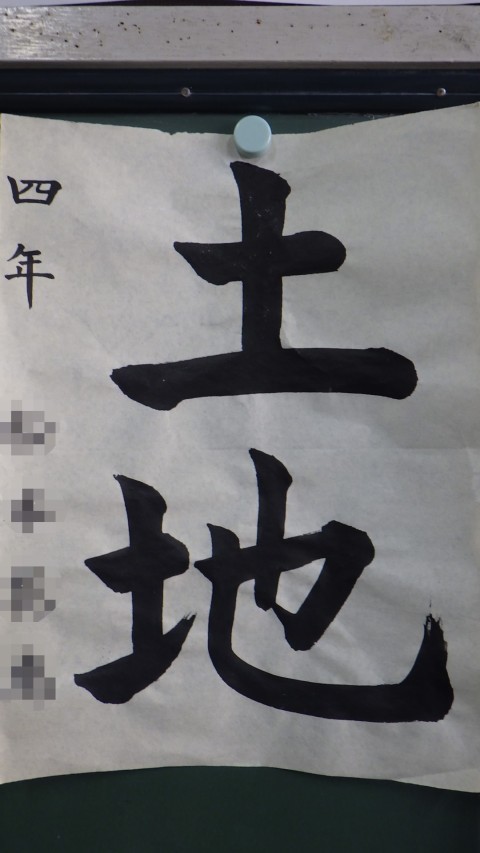 土地
四年